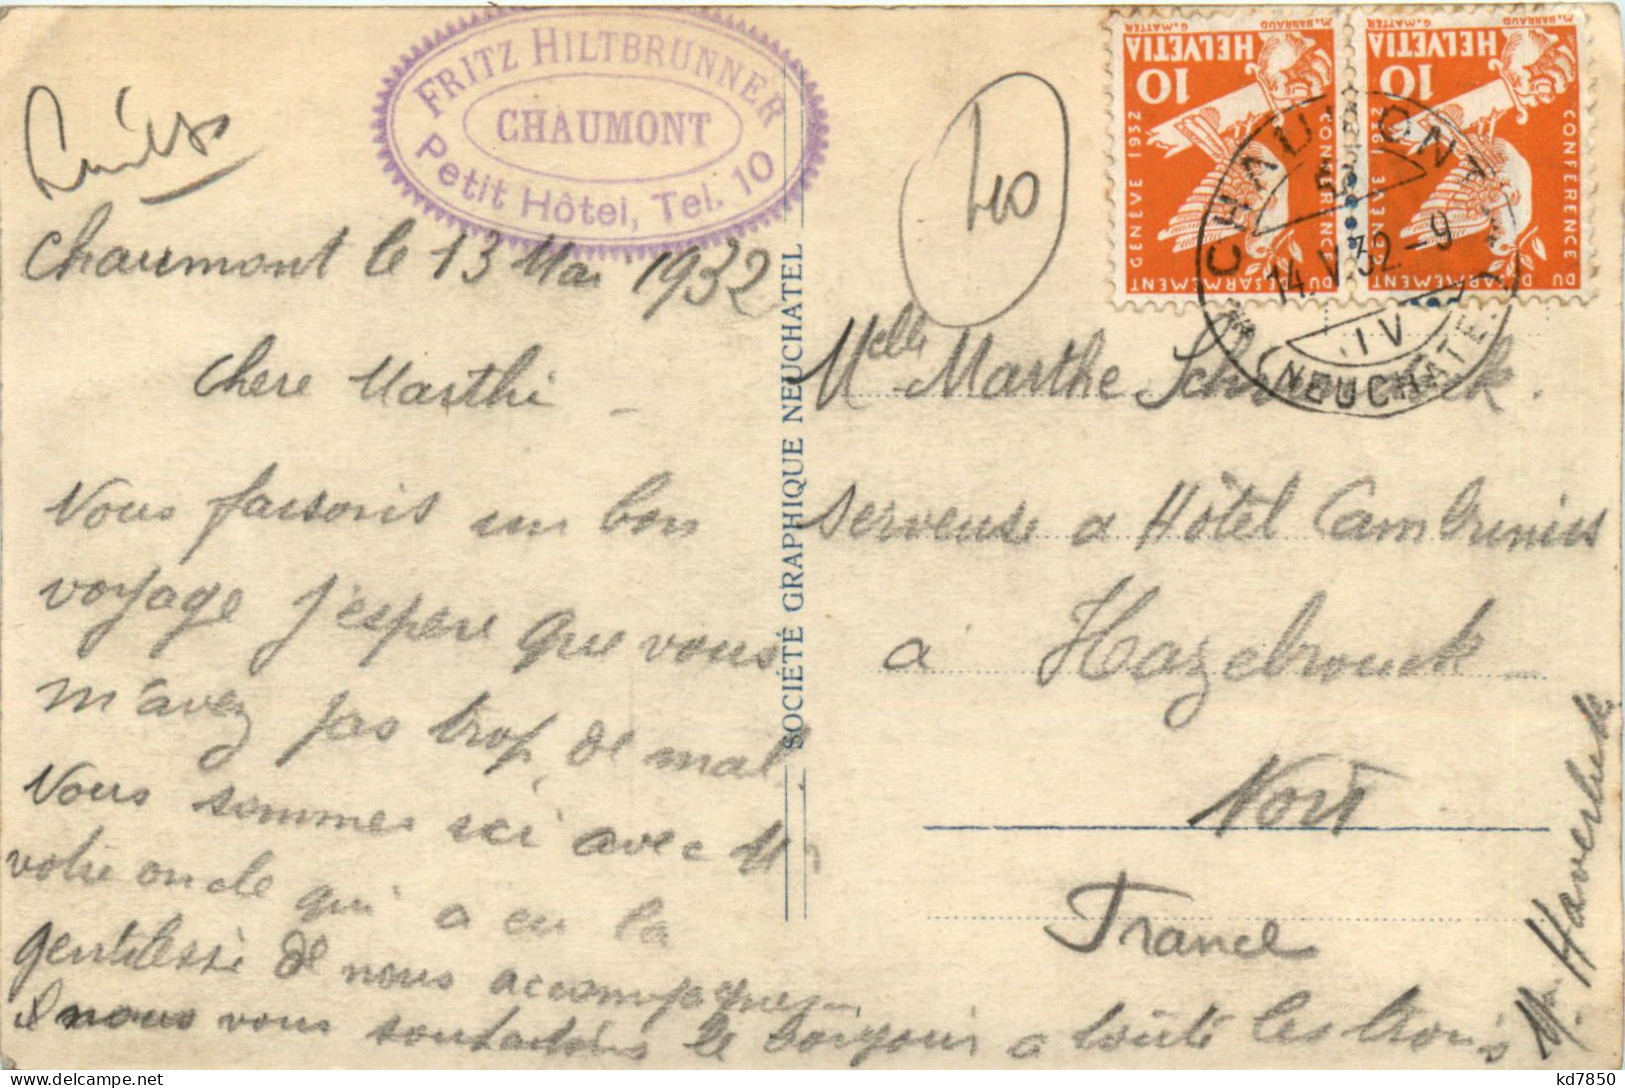 FRITZ HILTBRUNNER
CHAUMONT
Petit Hôtel, Tel. 10
Chaumont le 13 Mai 1932
Chere Marthe
Nous faisons un bon
voyage j'espere que vous
m'avez pas trop de mal
Nous sommes ici avec Mr
votre oncle qui a eu la
gentilesse de nous accompagner
& nous vous souhaitons le bonjour a toute les trois
Mme Haverlick
SOCIÉTÉ GRAPHIQUE NEUCHATEL
40
HELVETIA 10
M. BARRAUD
G. MATTER
CONFERENCE DU DESARMEMENT GENÈVE 1932
HELVETIA 10
M. BARRAUD
G. MATTER
CONFERENCE DU DESARMEMENT GENÈVE 1932
CHAUMONT
14.V.32-9
IV
(NEUCHATEL)
Melle Marthe
serveuse a Hôtel Cambrinus
a Hazebrouck
Nort
France
kd7850